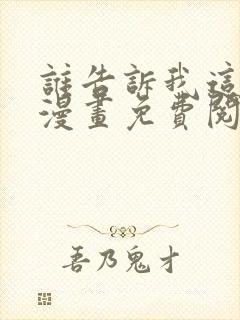 誰告訴我這
漫畫免費閱
吾乃鬼才